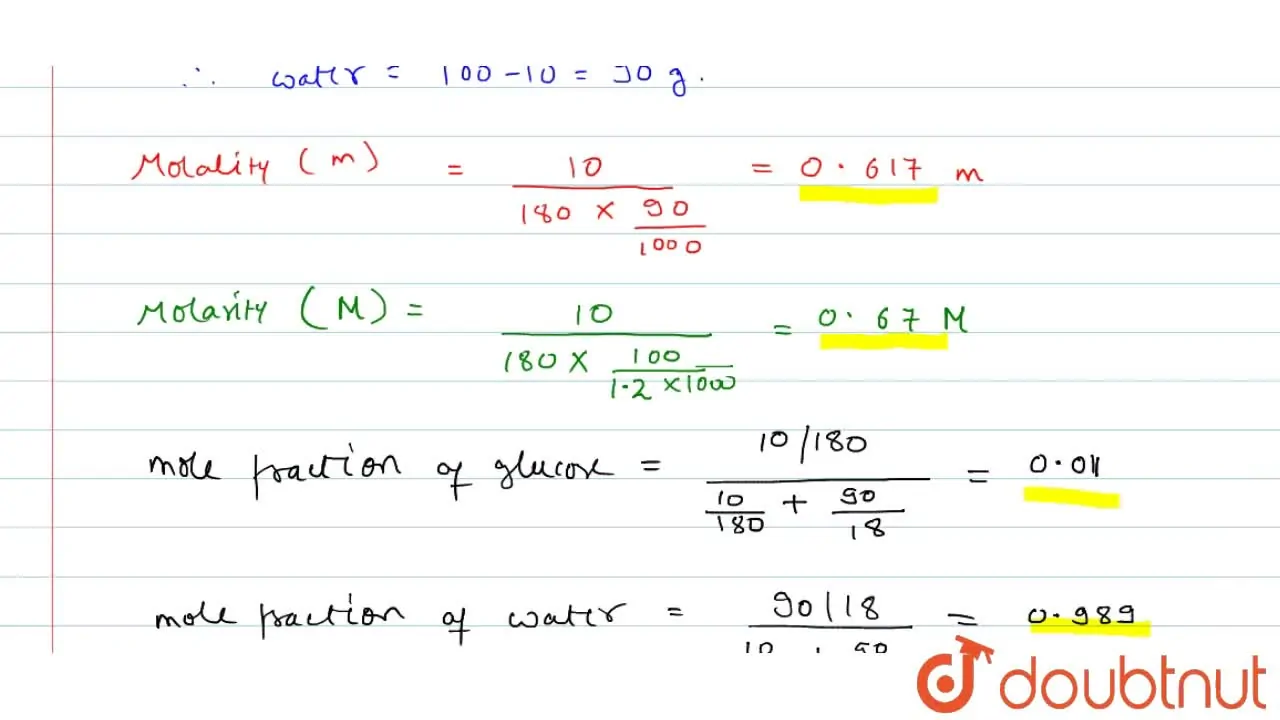 ∴ water = 100 - 10 = 90 g.
Molality (m) = 10 / (180 × 90/1000) = 0.617 m
Molarity (M) = 10 / (180 × 100/(1.2 × 1000)) = 0.67 M
mole fraction of glucose = (10/180) / (10/180 + 90/18) = 0.011
mole fraction of water = (90/18) / (10 + 90 = 0.989
doubtnut